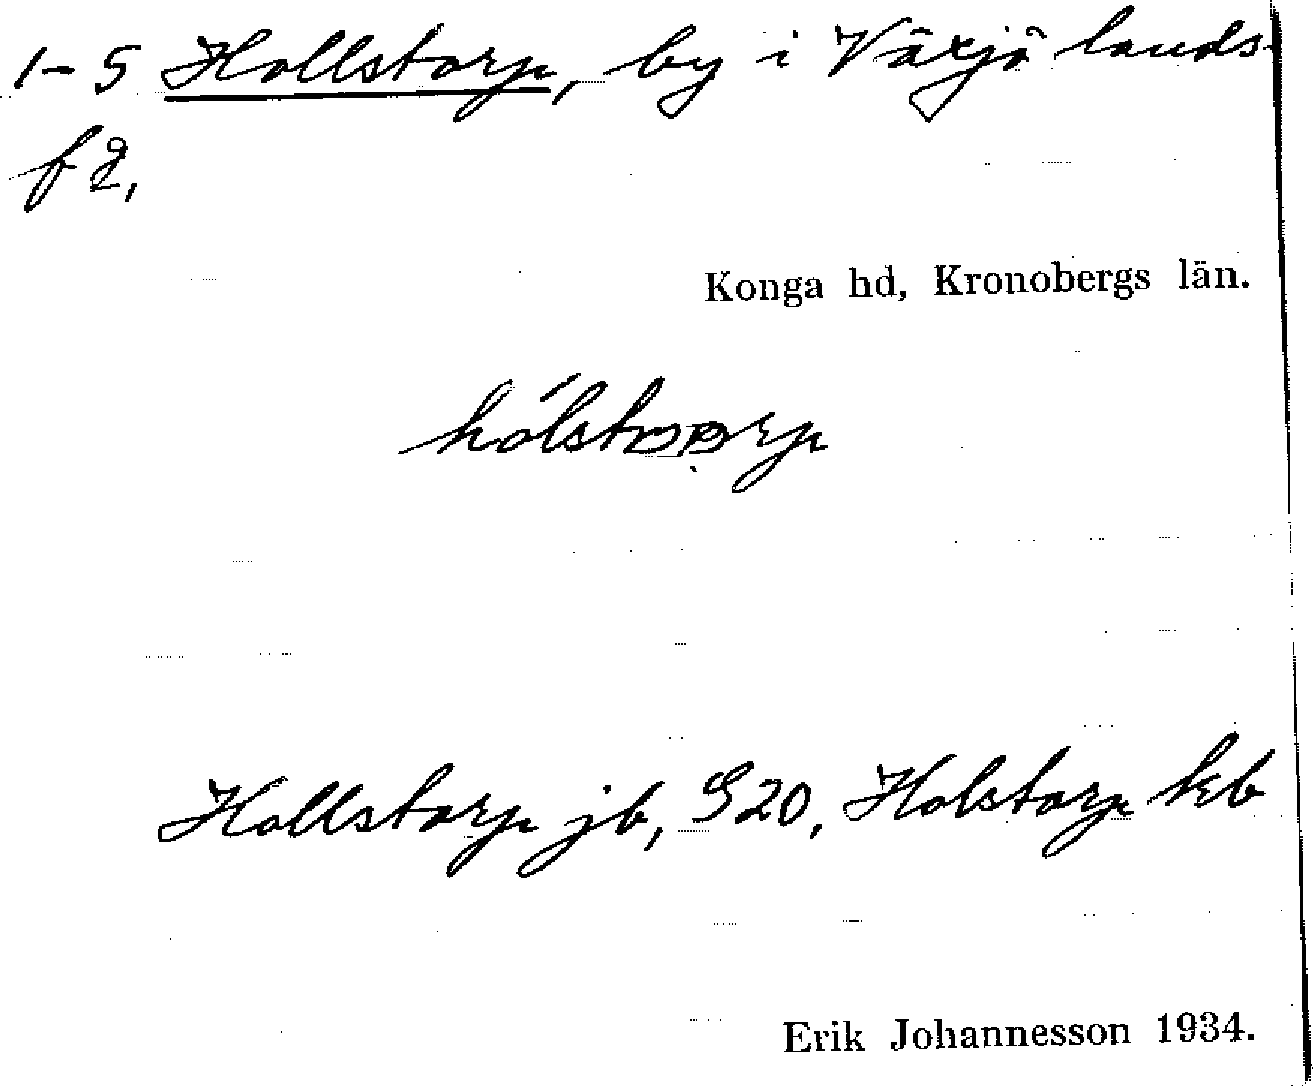 1-5 Hollstorp, by i Växjö lands-
fg,
Konga hd, Kronobergs län.
Hollstorp jb, S20, Holstorp kb
Erik Johannesson 1934.